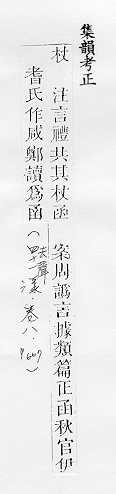 集韻考正
杖 注言禮共其杖函 案周譌言據類篇正函秋官伊
耆氏作咸鄭讀爲函(去聲漾·卷八·)